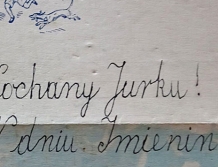 Kochany Jurku!
W dniu Imienin